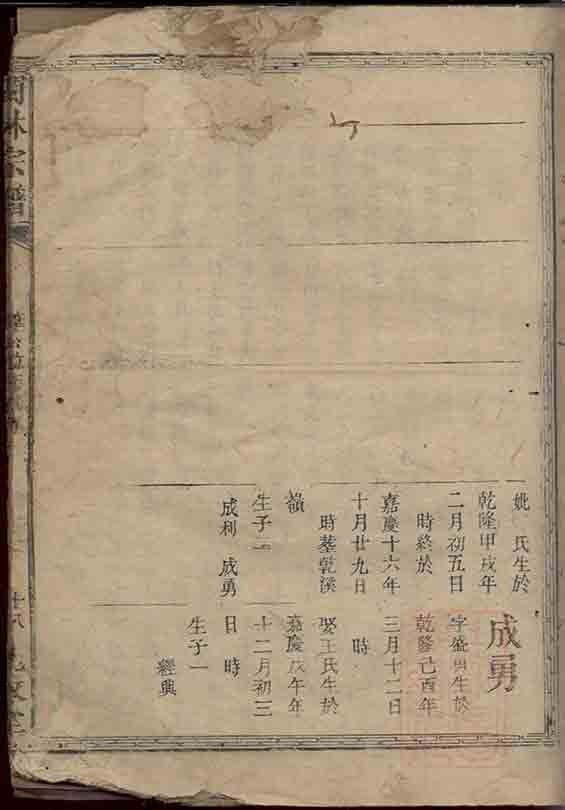 妣 氏生於
乾隆甲戌年
二月初五日
時終於
嘉慶十六年
十月廿九日
時塟乾溪
嶺
生子二
成利 成勇
成勇
字盛 生於
乾隆己酉年
三月十二日
時
娶王氏生於
嘉慶戊午年
十二月初三
日 時
生子一
經典
林宗譜
十八